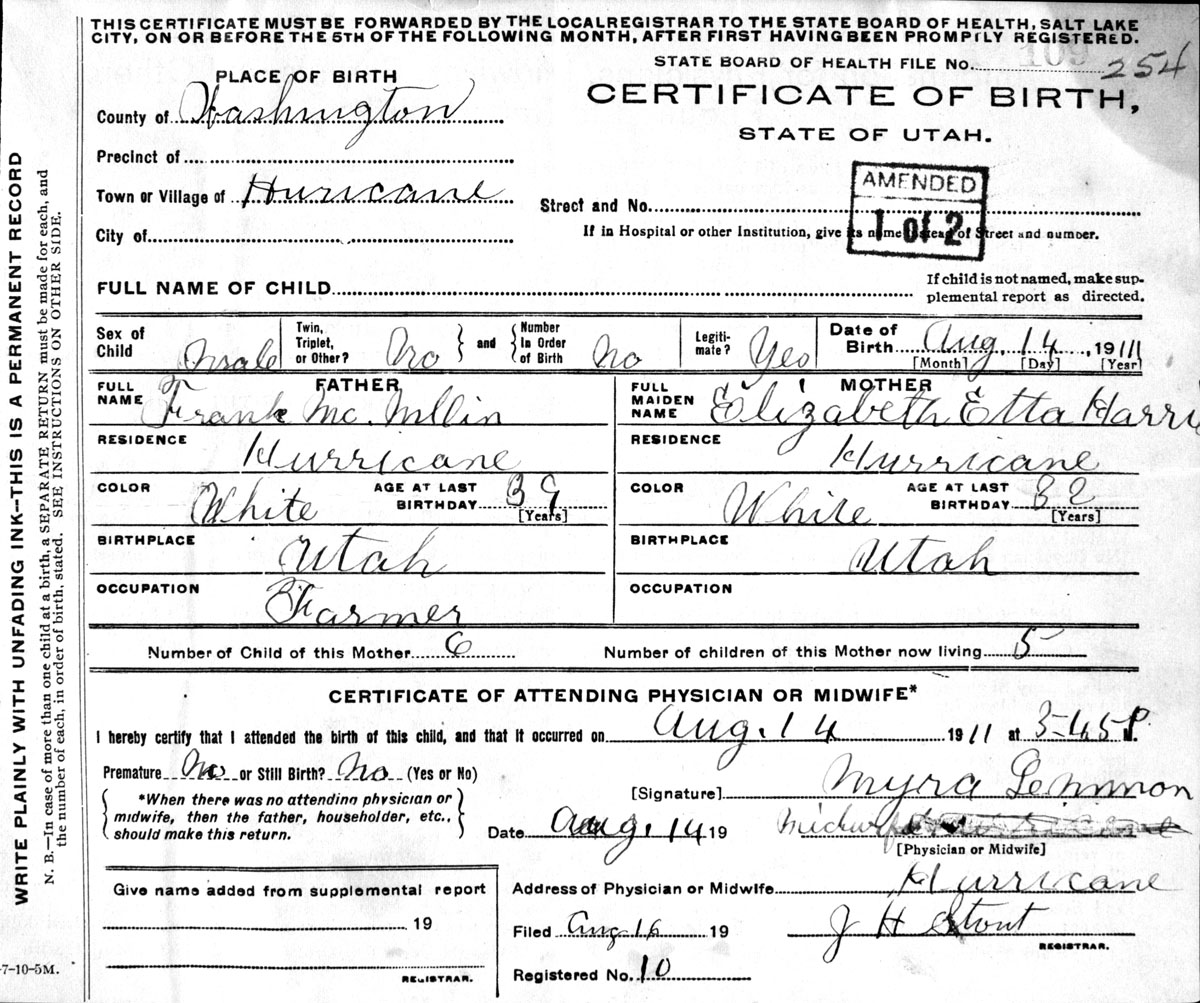 THIS CERTIFICATE MUST BE FORWARDED BY THE LOCAL REGISTRAR TO THE STATE BOARD OF HEALTH, SALT LAKE
CITY, ON OR BEFORE THE 5TH OF THE FOLLOWING MONTH, AFTER FIRST HAVING BEEN PROMPTLY REGISTERED.
109
STATE BOARD OF HEALTH FILE No. 254
PLACE OF BIRTH
CERTIFICATE OF BIRTH,
STATE OF UTAH.
County of Washington
Precinct of
Town or Village of Huricane
City of
AMENDED
1 of 2
Street and No.
If in Hospital or other Institution, give its name instead of Street and number.
FULL NAME OF CHILD
If child is not named, make sup-
plemental report as directed.
Sex of Child Male
Twin, Triplet, or Other? No
and
Number in Order of Birth No
Legiti-mate? Yes
Date of Birth Aug. 14, 1911
[Month] [Day] [Year]
FATHER
FULL NAME Frank Mc. Mllin
RESIDENCE Hurricane
COLOR White
AGE AT LAST BIRTHDAY 39
[Years]
BIRTHPLACE Utah
OCCUPATION Farmer
MOTHER
FULL MAIDEN NAME Elizabeth Etta Harri
RESIDENCE Hurricane
COLOR White
AGE AT LAST BIRTHDAY 32
[Years]
BIRTHPLACE Utah
OCCUPATION
Number of Child of this Mother 6
Number of children of this Mother now living 5
CERTIFICATE OF ATTENDING PHYSICIAN OR MIDWIFE*
I hereby certify that I attended the birth of this child, and that it occurred on Aug. 14 1911 at 3-45 P.
Premature No or Still Birth? No (Yes or No)
*When there was no attending physician or
midwife, then the father, householder, etc.,
should make this return.
[Signature] Myra Lemmon
Date Aug. 14 19
Midwife
[Physician or Midwife]
Give name added from supplemental report
19
REGISTRAR.
Address of Physician or Midwife Hurricane
Filed Aug 16 19
J H Stout
REGISTRAR.
Registered No. 10
WRITE PLAINLY WITH UNFADING INK—THIS IS A PERMANENT RECORD
N. B.—In case of more than one child at a birth, a SEPARATE RETURN must be made for each, and
the number of each, in order of birth, stated. SEE INSTRUCTIONS ON OTHER SIDE.
-7-10-5M.